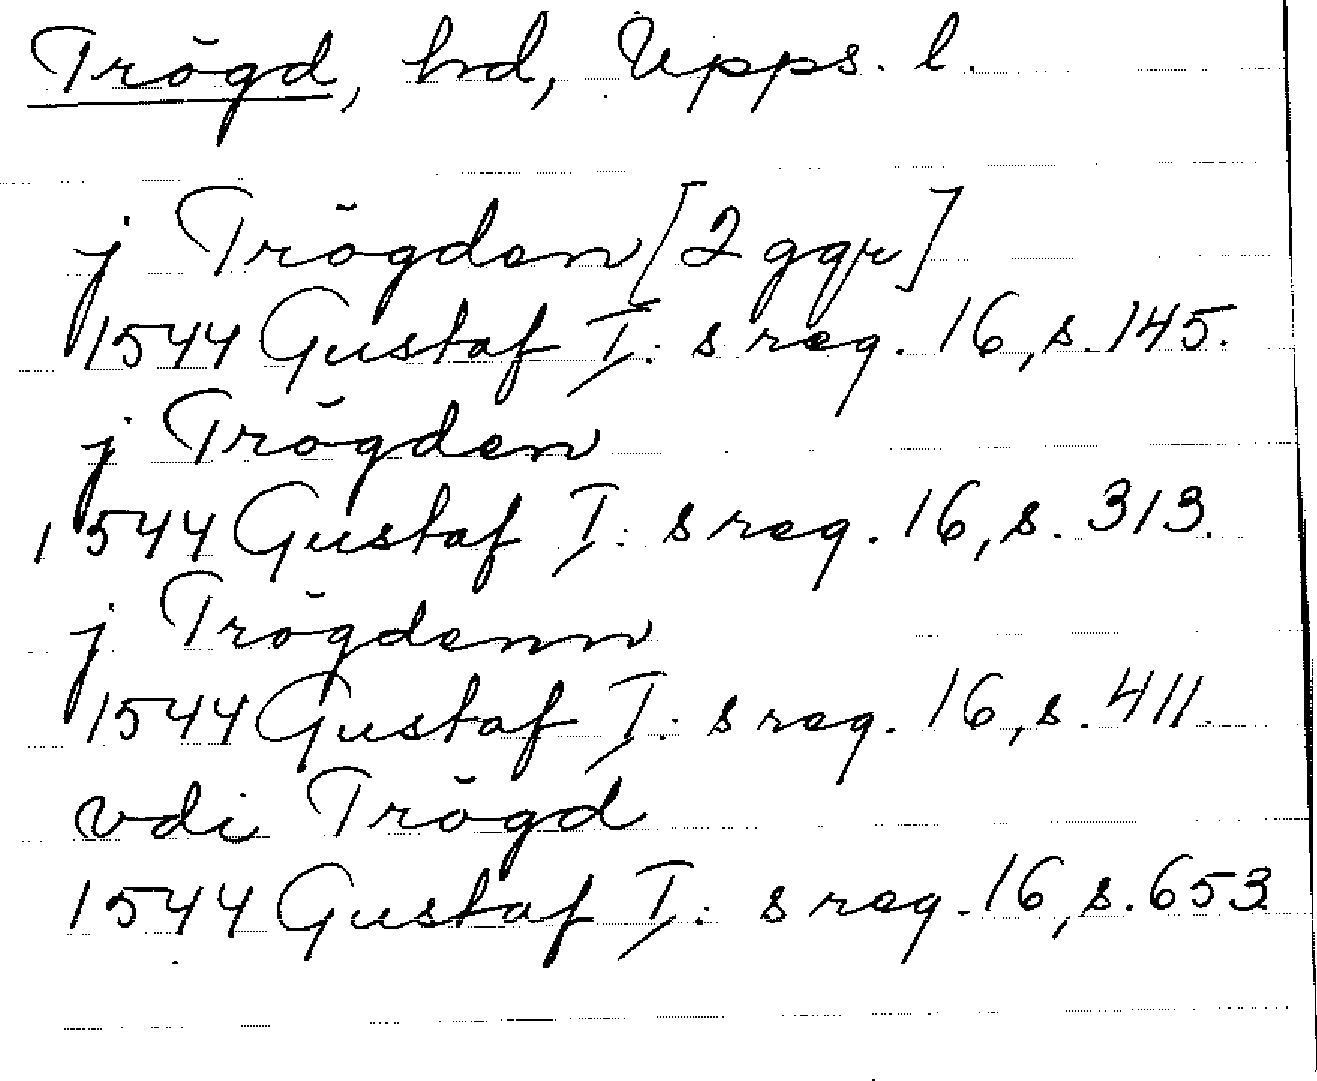 Trögd, hd, Upps. l.
j Trögden [2 ggr]
1544 Gustaf I: s reg. 16, s. 145.
j Trögden
1544 Gustaf I: s reg. 16, s. 313.
j Trögdenn
1544 Gustaf I: s reg. 16, s. 411.
vdi Trögd
1544 Gustaf I: s reg. 16, s. 653